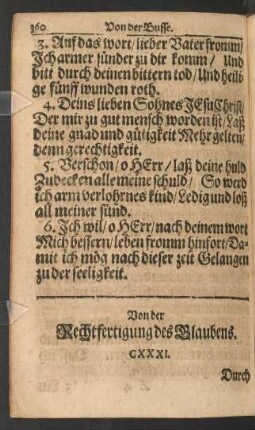 360 Von der Busse.
3. Auf das wort/ lieber Vater fromm/
Ich armer sünder zu dir komm/ Und
bitt durch deinen bittern tod/ Und heili-
ge fünff wunden roth.
4. Deins lieben Sohnes JEsu Christ/
Der mir zu gut mensch worden ist/ Laß
deine gnad und gütigkeit Mehr gelten/
denn gerechtigkeit.
5. Verschon/ o HErr/ laß deine huld
Zudecken alle meine schuld/ So werd
ich arm verlohrnes kind/ Ledig und loß
all meiner sünd.
6. Ich wil/ o HErr/ nach deinem wort
Mich bessern/ leben fromm hinfort/ Da-
mit ich mög nach dieser zeit Gelangen
zu der seeligkeit.
Von der
Rechtfertigung des Glaubens.
CXXXI.
Durch